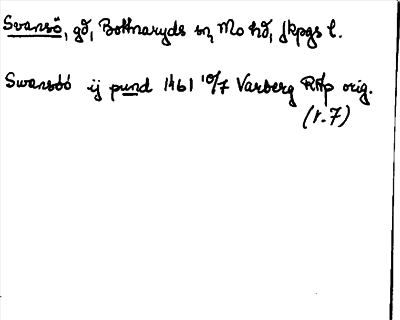 Svansö, gd, Bottnaryds sn, Mo hd, Jkpgs l.
Swansöö ij pund 1461 10/7 Varberg RAp orig.
(r. 7)